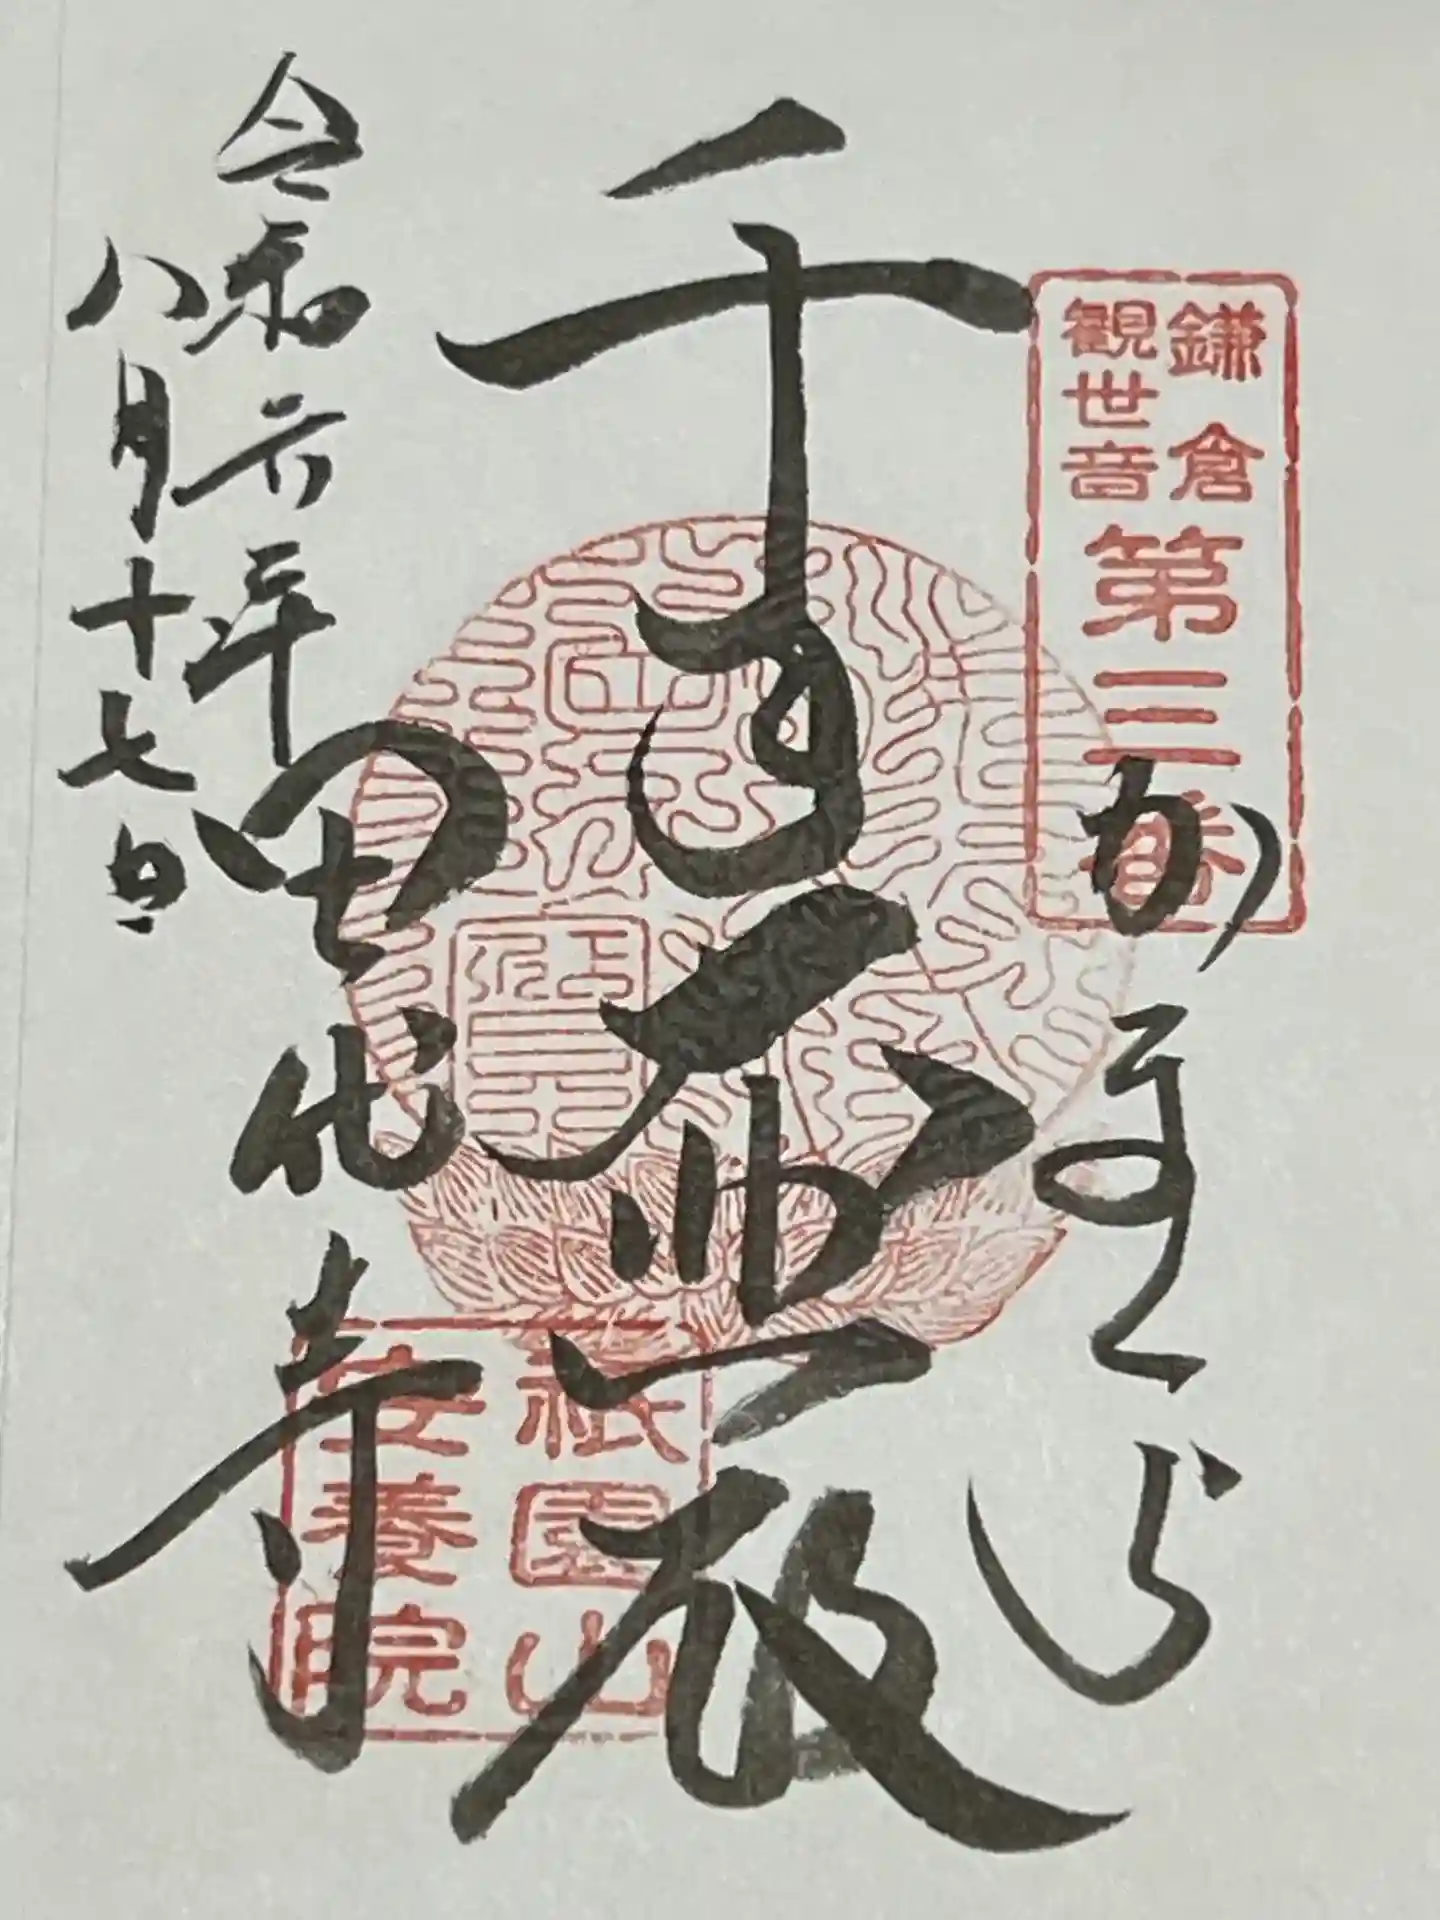 鎌倉
観世音
第三番
かまくら
千手
田代寺
令和六年
八月十七日
祇園山
安養院